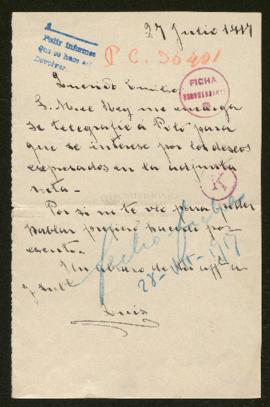 27 Julio 1917
A
Pedir informes
que se hace al
devolver
P.C. 30401
FICHA
Querido Emilio:
S. Mtce Rey me encarga
se telegrafíe á Polo para
que se interese por los deseos
expresados en la adjunta
nota.
Por si no te veo para poder
hablar prefiero hacerlo por
escrito.
Un abrazo de tu affmo
Luis
fecho fecha
28-VII-917